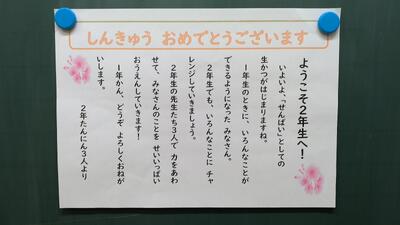 しんきゅう おめでとうございます
ようこそ2年生へ！
いよいよ、「せんぱい」としての
生かつがはじまりますね。
1年生のときに、いろんなことが
できるようになった みなさん。
2年生でも、いろんなことに チャ
レンジしていきましょう。
2年生の先生たち3人で 力をあわ
せて、みなさんのことを せいいっぱい
おうえんしていきます！
1年かん、どうぞ よろしくおねが
いします。
2年たんにん3人より